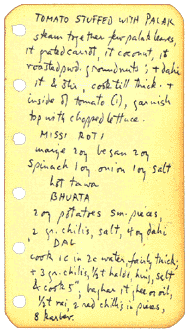 TOMATO STUFFED WITH PALAK
steam together few palak leaves,
1t grated carrot, 1t coconut, 1t
roasted pwd. groundnuts; + dahi
1t & 3hr, cook till thick. +
inside of tomato (1), garnish
top with chopped lettuce.
MISSI ROTI
mange 20g besan 20g
Spinach 10g onion 10g salt
hot tawa
BHURTA
20g potatoes sm. pieces,
2 gr. chilis, salt, 40g dahi
DAL
cook 1c in 2c water, fairly thick;
+ 3 gr. chilis, ½t haldi, hing, salt
& cook 5", baghar 1t ghee or oil,
½t rai 2 red chillis in pieces,
8